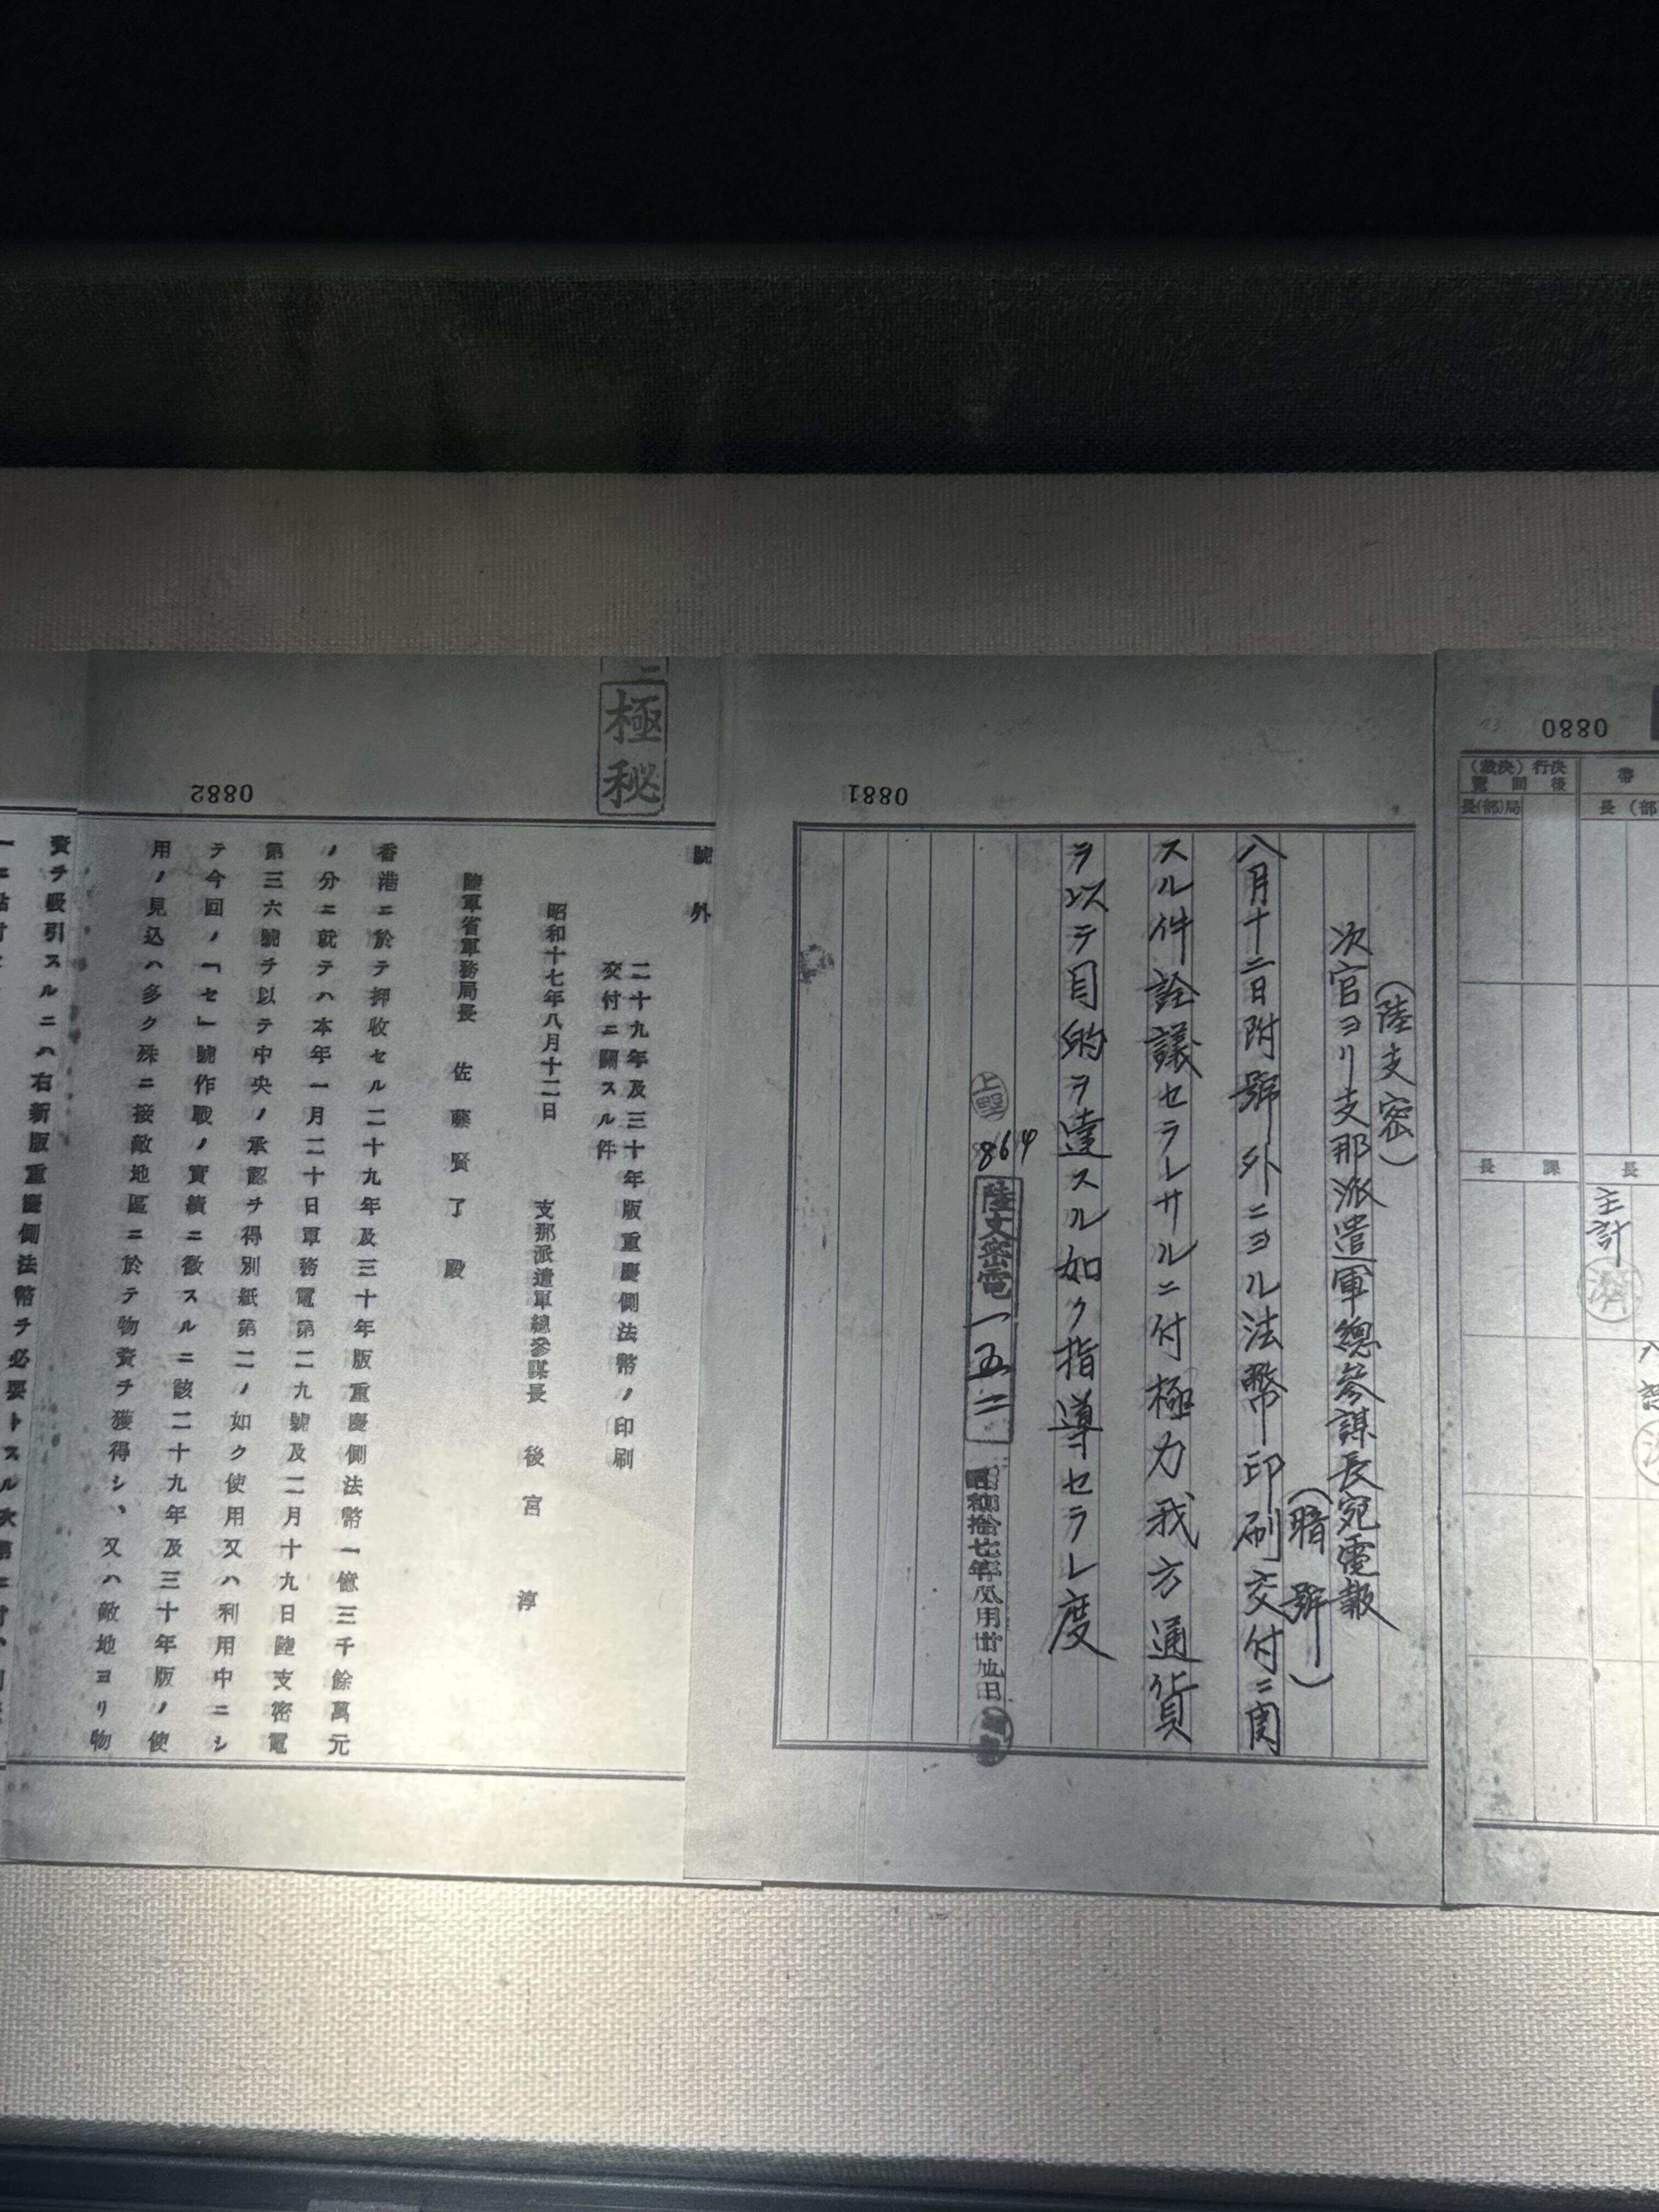 0880
決行後
(裁決)
回覽
局(部)長
帶
(部)長
課長
長
主計
濟
0881
(陸支密)
次官ヨリ支那派遣軍總參謀長宛電報
(暗號)
八月十二日附號外ニヨル法幣印刷交付ニ関
スル件詮議セラレサルニ付極力我方通貨
ヲ以テ目的ヲ達スル如ク指導セラレ度
864
陸支密電一五二
昭和拾七年八月廿九日
0882
極秘
號外
二十九年及三十年版重慶側法幣ノ印刷
交付ニ關スル件
昭和十七年八月十二日
支那派遣軍總參謀長 後宮淳
陸軍省軍務局長 佐藤賢了殿
香港ニ於テ押收セル二十九年及三十年版重慶側法幣一億三千餘萬元
ノ分ニ就テハ本年一月二十日軍務電第二九號及二月十九日陸支密電
第三六號ヲ以テ中央ノ承認ヲ得別紙第二ノ如ク使用又ハ利用中ニシ
テ今回ノ「セ」號作戰ノ實績ニ徵スルニ該二十九年及三十年版ノ使
用ノ見込ハ多ク殊ニ接敵地區ニ於テ物資ヲ獲得シ、又ハ敵地ヨリ物
資ヲ吸引スルニハ右新版重慶側法幣ヲ必要トスル次第ニ付